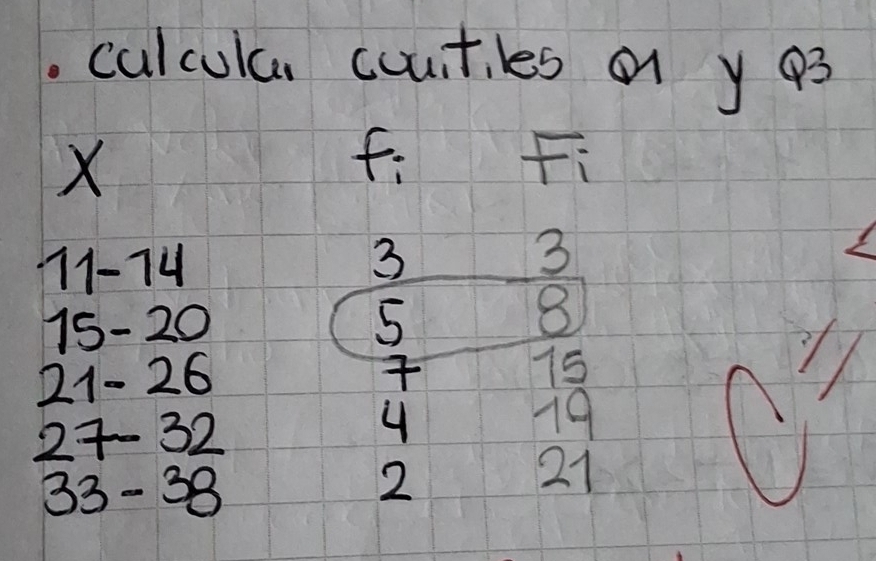 . calcular cuartiles Q1 y Q3
X fi Fi
11-14 3 3
15-20 5 8
21-26 7 15
27-32 4 19
33-38 2 21